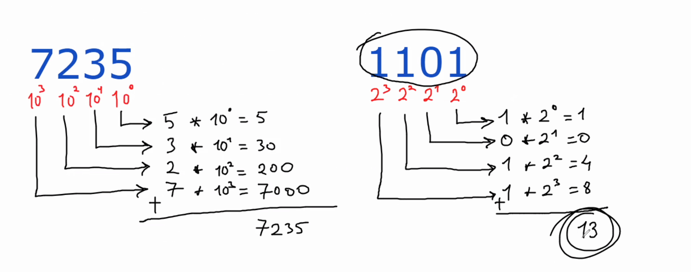 7235
10³ 10² 10¹ 10⁰
5 * 10⁰ = 5
3 * 10¹ = 30
2 * 10² = 200
7 * 10³ = 7000
+
7235
1101
2³ 2² 2¹ 2⁰
1 * 2⁰ = 1
0 * 2¹ = 0
1 * 2² = 4
1 * 2³ = 8
+
13